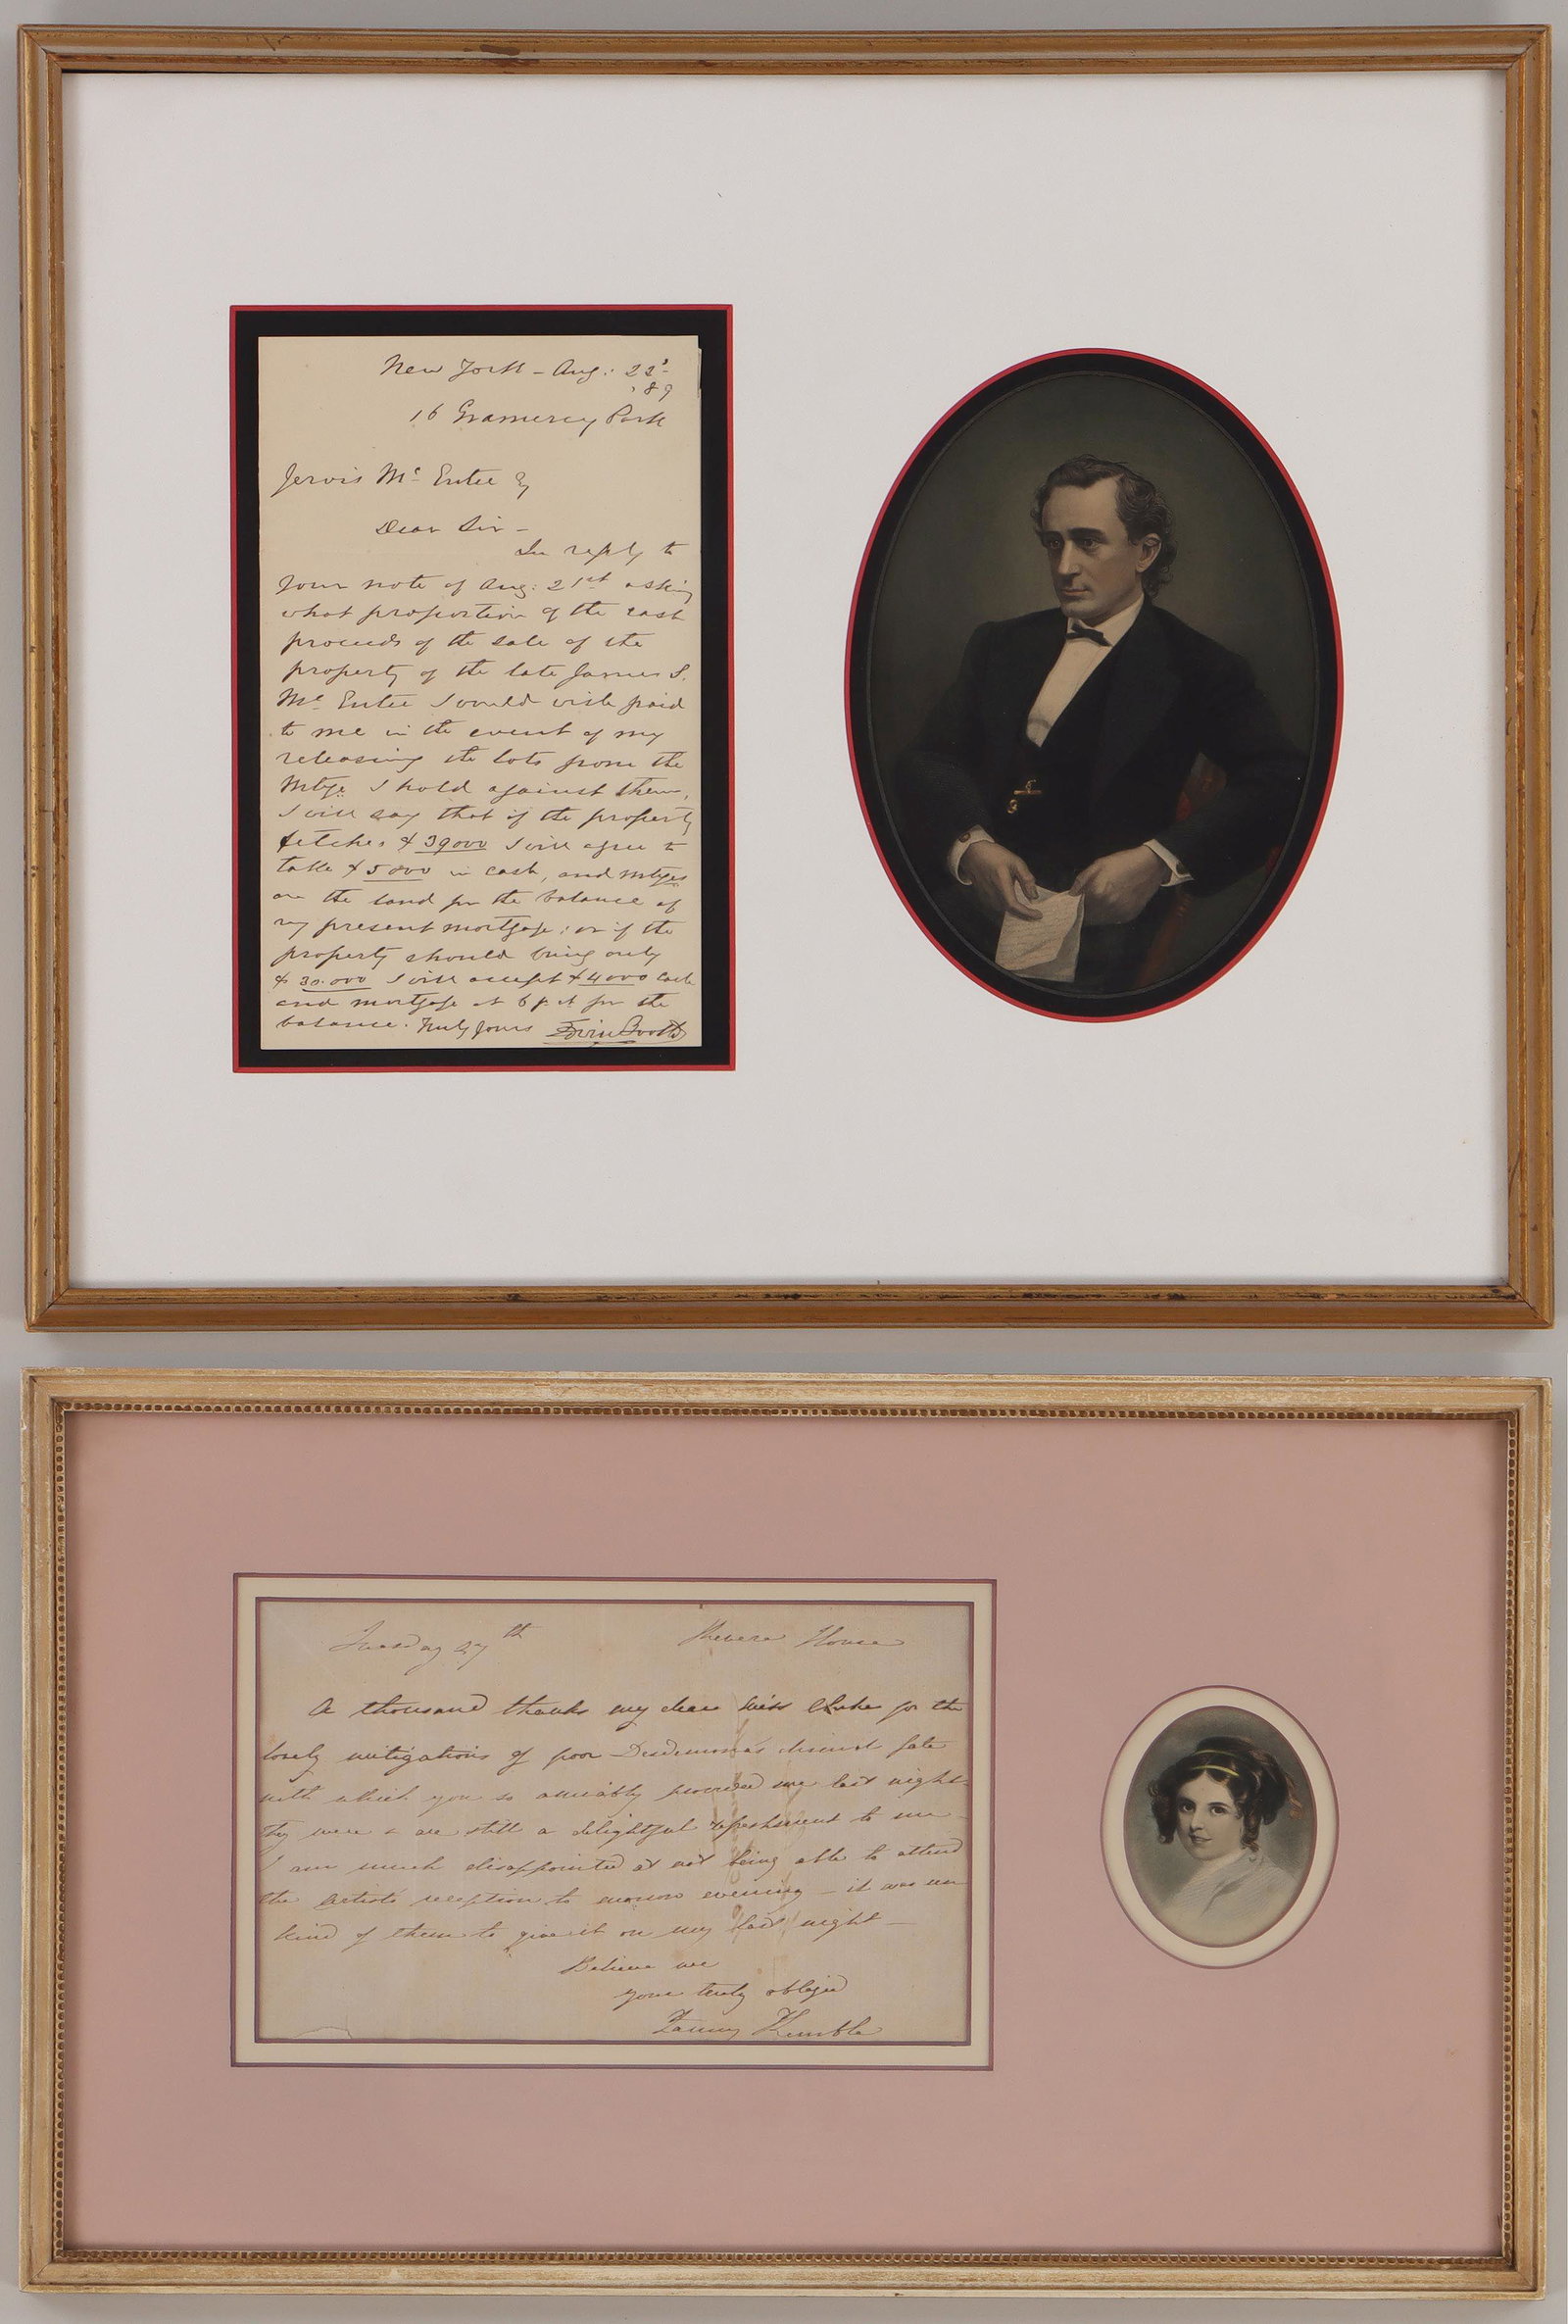 New York - Aug: 22d
'89
16 Gramercy Park
Jervis Mc Entee Esq
Dear Sir -
In reply to
your note of Aug: 21st asking
what proportion of the cash
proceeds of the sale of the
property of the late James S.
Mc Entee I would wish paid
to me in the event of my
releasing the lots from the
Mtge. I hold against them,
I will say that if the property
fetches $39000 I will agree to
take $5000 in cash, and mtges
on the land for the balance of
my present mortgage; or if the
property should bring only
$30.000 I will accept $4000 cash
and mortgage at 6 p. ct for the
balance. Truly Yours Edwin Booth
Tuesday 27th Revere House
A thousand thanks my dear Miss for the
lovely mitigations of poor Desdemona's dismal fate
with which you so amiably provided me last night
they were & are still a delightful refreshment to me -
I am much disappointed at not being able to attend
the Artists reception to morrow evening - it was un
kind of them to give it on my last night -
Believe me
yours truly obliged
Fanny Kemble